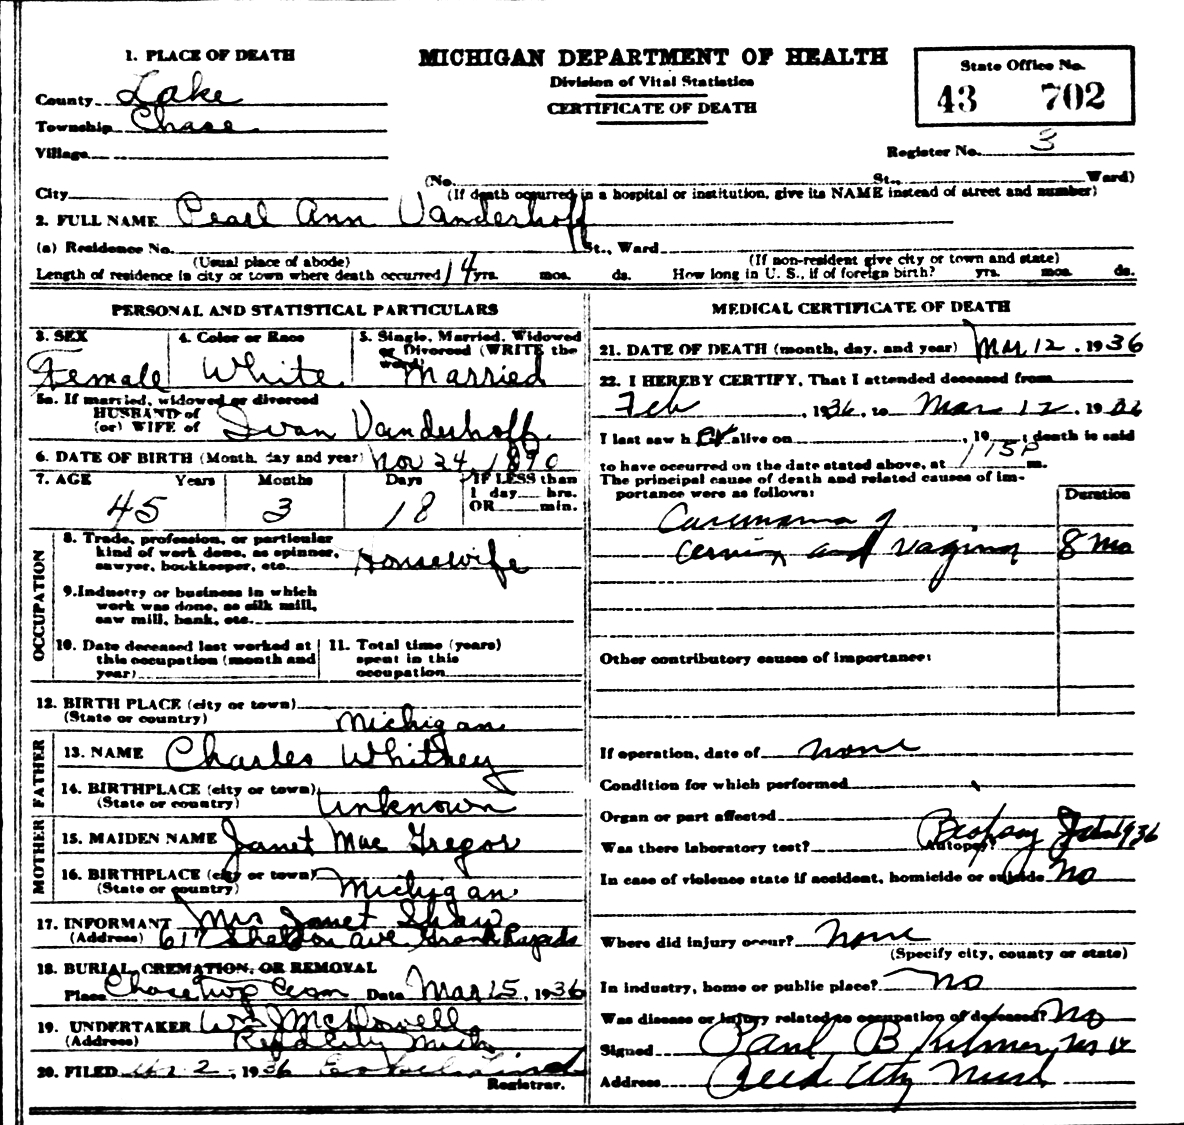 MICHIGAN DEPARTMENT OF HEALTH
Division of Vital Statistics
CERTIFICATE OF DEATH
State Office No.
43 702
Register No. 3
1. PLACE OF DEATH
County Lake
Township Chase
Village
City
(No. St., Ward)
(If death occurred in a hospital or institution, give its NAME instead of street and number)
2. FULL NAME Pearl Ann Vanderhoff
(a) Residence No. St., Ward
(Usual place of abode) (If non-resident give city or town and state)
Length of residence in city or town where death occurred 14 yrs. mos. ds. How long in U. S., if of foreign birth? yrs. mos. ds.
PERSONAL AND STATISTICAL PARTICULARS
3. SEX
Female
4. Color or Race
White
5. Single, Married, Widowed
or Divorced (WRITE the
word)
Married
5a. If married, widowed or divorced
HUSBAND of
(or) WIFE of Ivan Vanderhoff
6. DATE OF BIRTH (Month, day and year) Nov 24, 1890
7. AGE Years Months Days IF LESS than
1 day hrs.
OR min.
45 3 18
OCCUPATION
8. Trade, profession, or particular
kind of work done, as spinner,
sawyer, bookkeeper, etc. Housewife
9. Industry or business in which
work was done, as silk mill,
saw mill, bank, etc.
10. Date deceased last worked at
this occupation (month and
year)
11. Total time (years)
spent in this
occupation
12. BIRTH PLACE (city or town)
(State or country) Michigan
FATHER
13. NAME Charles Whitney
14. BIRTHPLACE (city or town)
(State or country) Unknown
MOTHER
15. MAIDEN NAME Janet Mac Gregor
16. BIRTHPLACE (city or town)
(State or country) Michigan
17. INFORMANT Mrs Janet Shaw
(Address) 617 Sheldon ave Grand Rapids
18. BURIAL, CREMATION, OR REMOVAL
Place Chase Twp Cem Date Mar 15, 1936
19. UNDERTAKER Wm J McDowell
(Address) Reed City Mich
20. FILED 2, 1936
Registrar.
MEDICAL CERTIFICATE OF DEATH
21. DATE OF DEATH (month, day, and year) Mar 12, 1936
22. I HEREBY CERTIFY, That I attended deceased from
Feb, 1936, to Mar 12, 1936
I last saw h er alive on , 19 ; death is said
to have occurred on the date stated above, at 115P m.
The principal cause of death and related causes of im-
portance were as follows:
Duration
Carcinoma of
cervix and vagina 8 mo
Other contributory causes of importance:
If operation, date of none
Condition for which performed
Organ or part affected
Was there laboratory test? Autopsy? Biopsy Jan 1936
In case of violence state if accident, homicide or suicide No
Where did injury occur? none
(Specify city, county or state)
In industry, home or public place? no
Was disease or injury related to occupation of deceased? No
Signed Paul B Kilmer
Address Reed City Mich